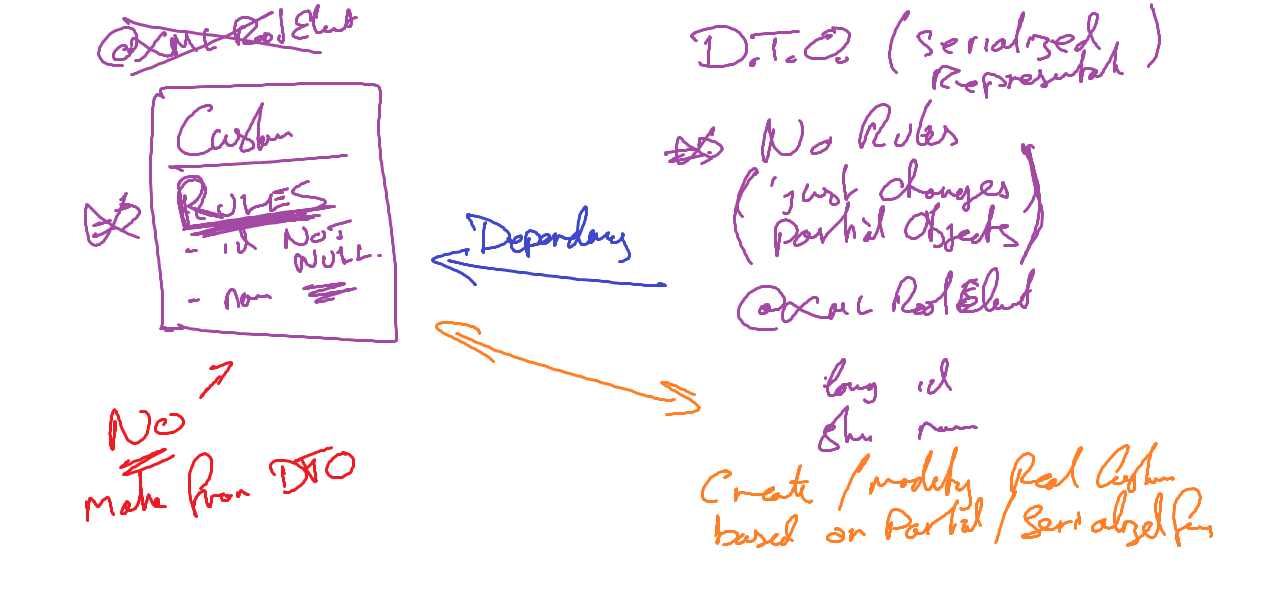 @XML RootElement
Custom
RULES
- id NOT NULL.
- nam
NO
make from DTO
Dependency
D.T.O. (serialized
Represental)
No Rules
('just changes
partial objects)
@XML RootElement
long id
Create / modify Real Custom
based on Partial / Serialized